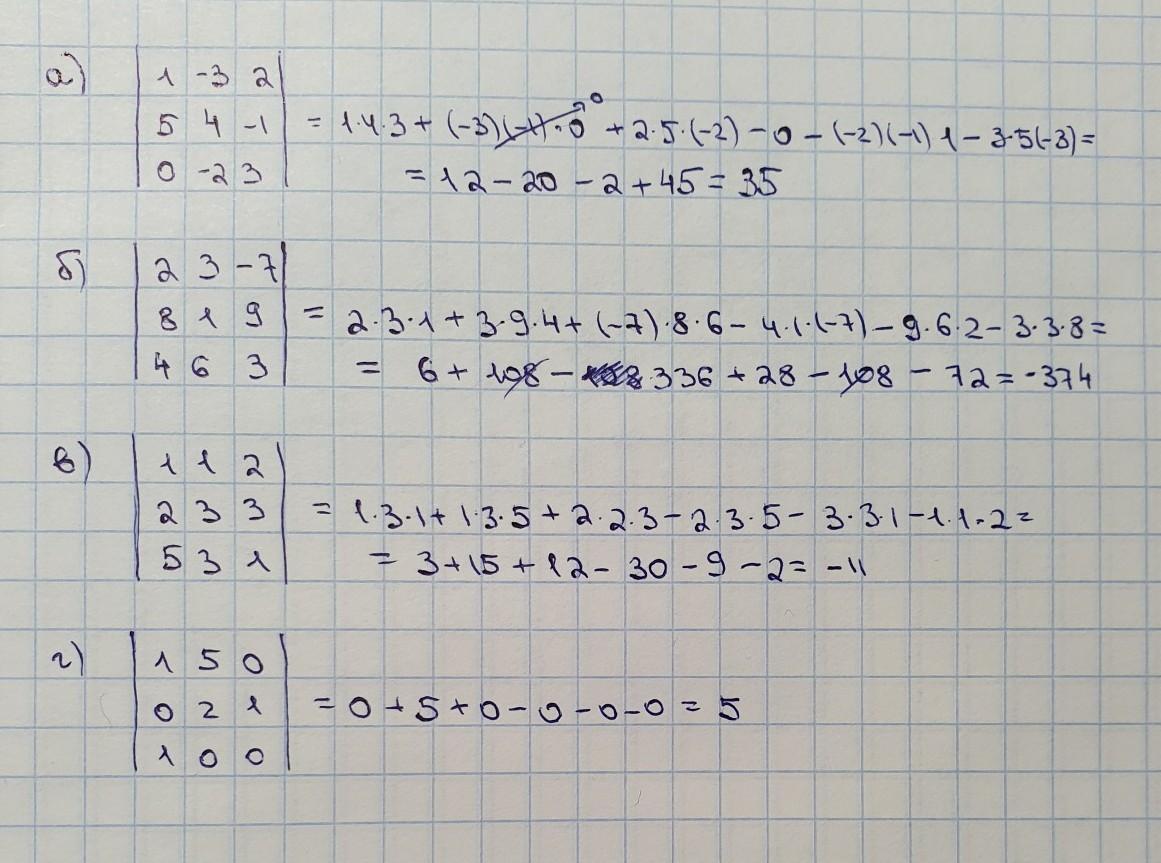 а) | 1 -3 2 |
| 5 4 -1 | = 1·4·3 + (-3)(-1)·0 0 + 2·5·(-2) - 0 - (-2)(-1)1 - 3·5(-3) =
| 0 -2 3 | = 12 - 20 - 2 + 45 = 35
б) | 2 3 -7 |
| 8 1 9 | = 2·3·1 + 3·9·4 + (-7)·8·6 - 4·1·(-7) - 9·6·2 - 3·3·8 =
| 4 6 3 | = 6 + 108 - 336 + 28 - 108 - 72 = -374
в) | 1 1 2 |
| 2 3 3 | = 1·3·1 + 1·3·5 + 2·2·3 - 2·3·5 - 3·3·1 - 1·1·2 =
| 5 3 1 | = 3 + 15 + 12 - 30 - 9 - 2 = -11
г) | 1 5 0 |
| 0 2 1 | = 0 + 5 + 0 - 0 - 0 - 0 = 5
| 1 0 0 |